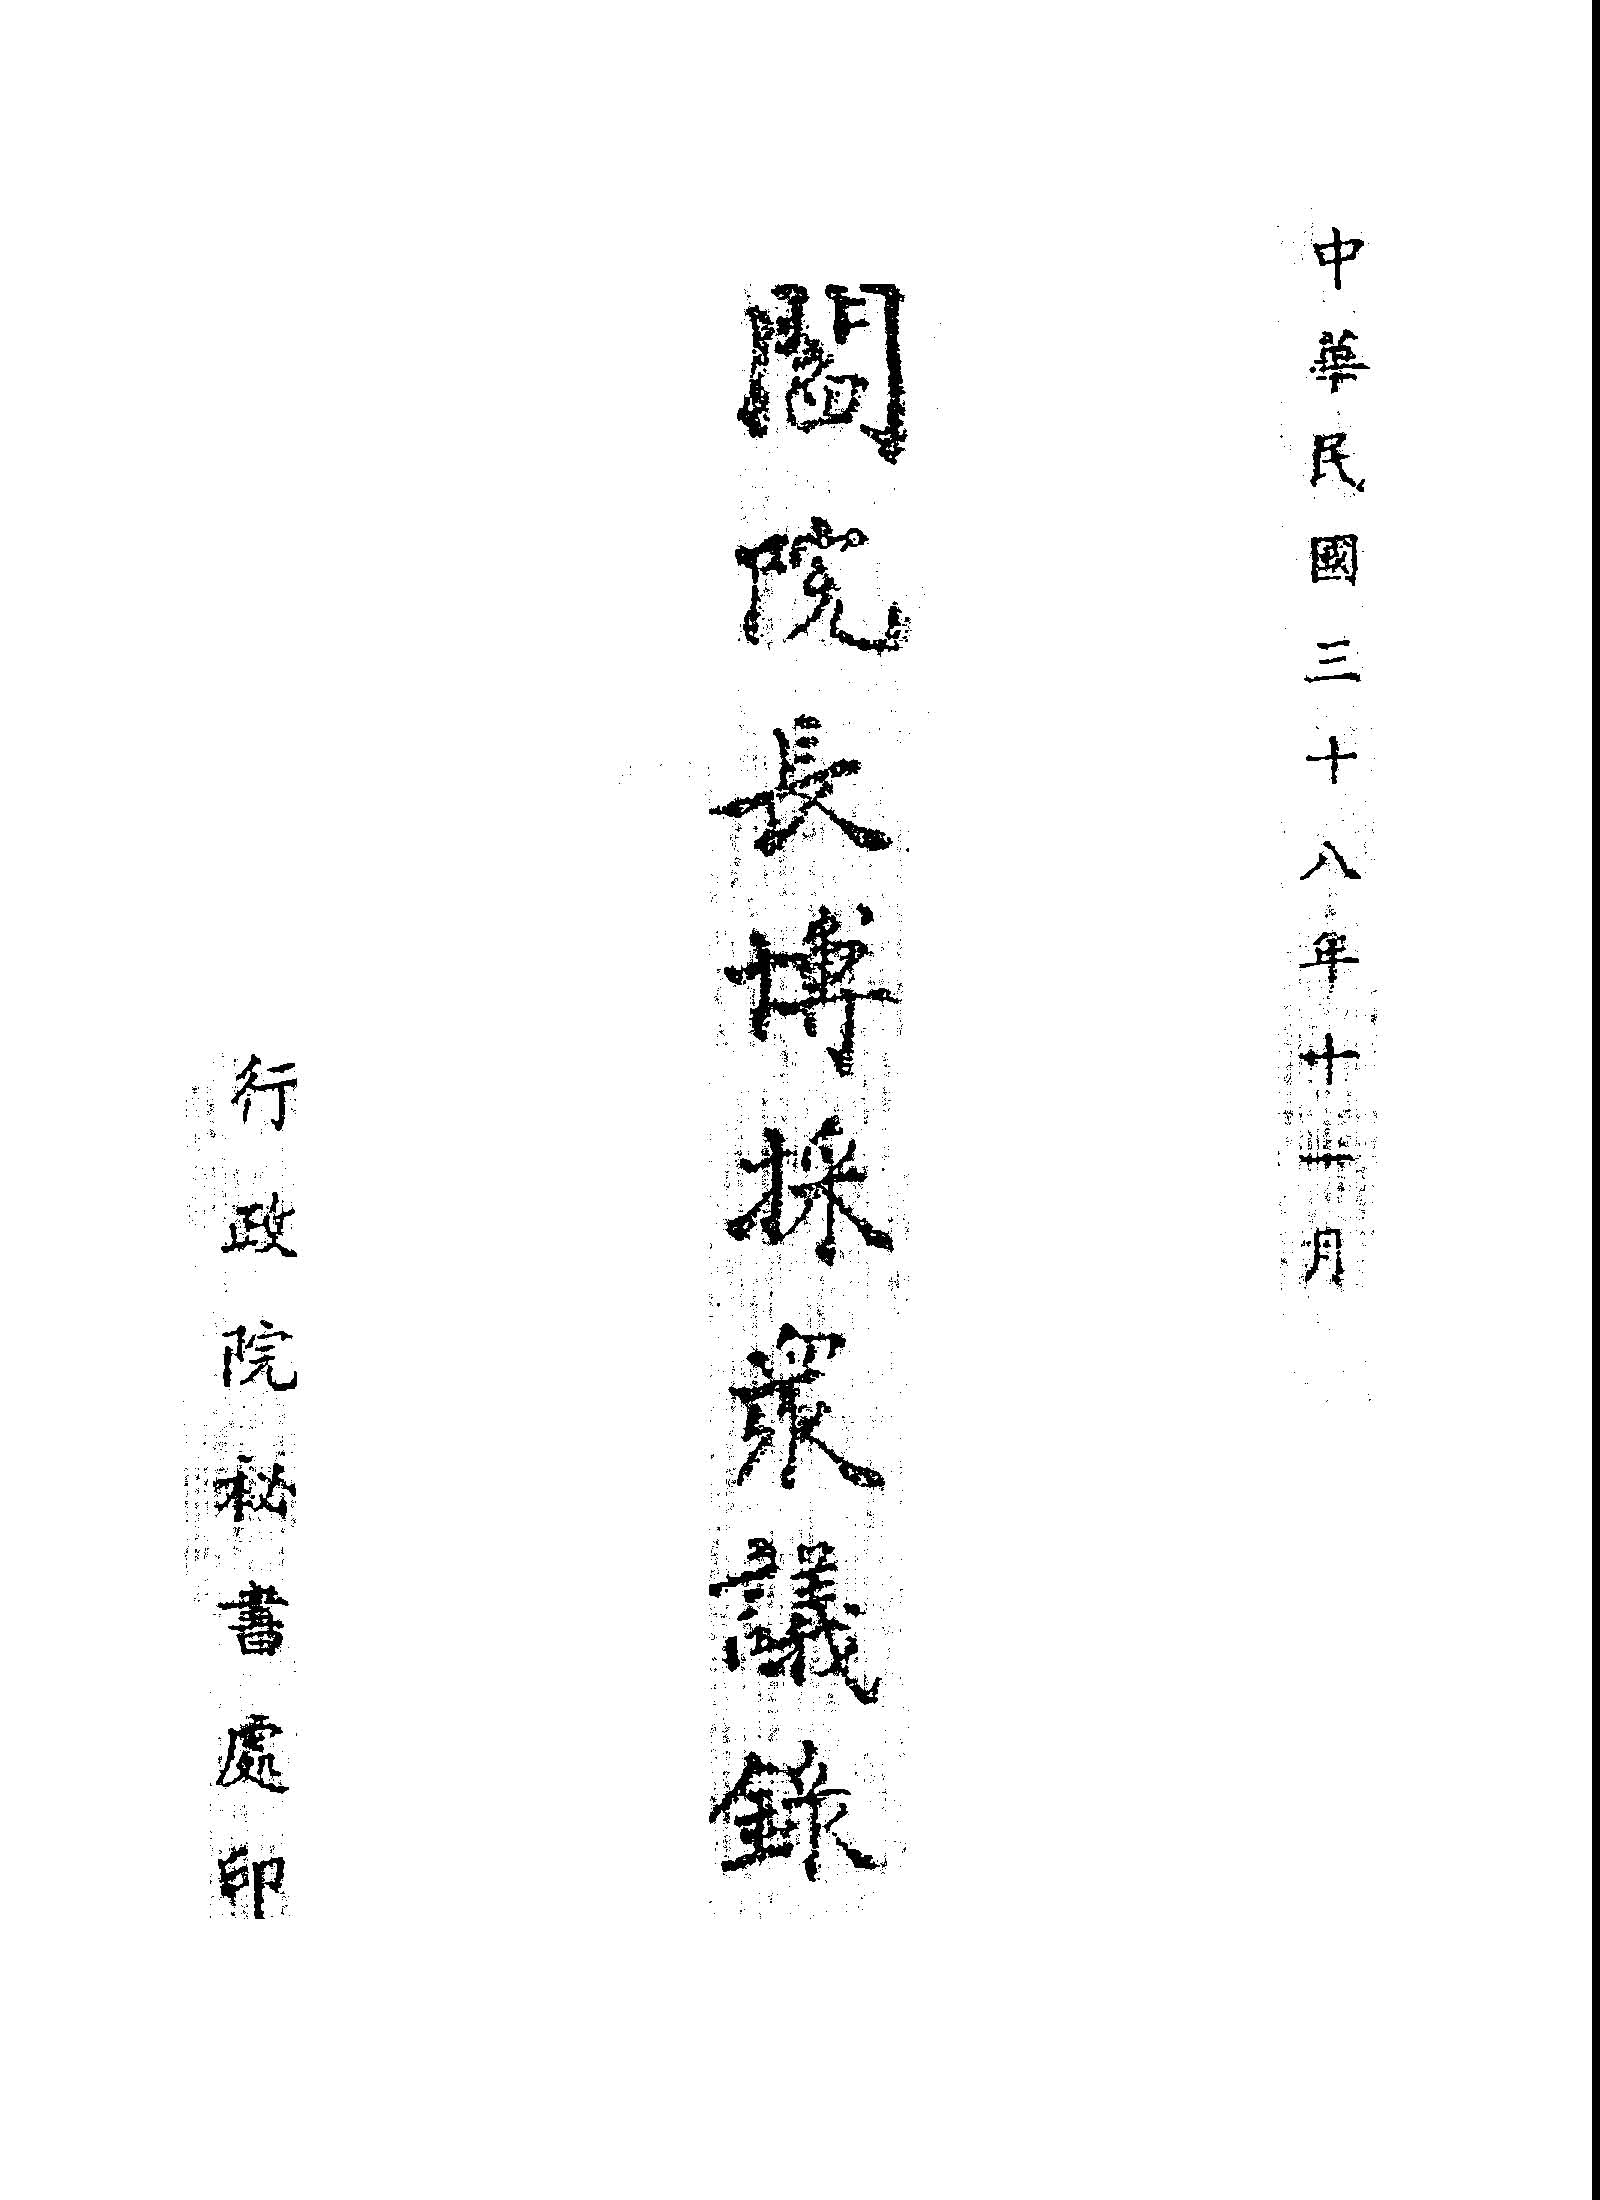 中華民國三十八年十一月
閻院長博採衆議錄
行政院秘書處印